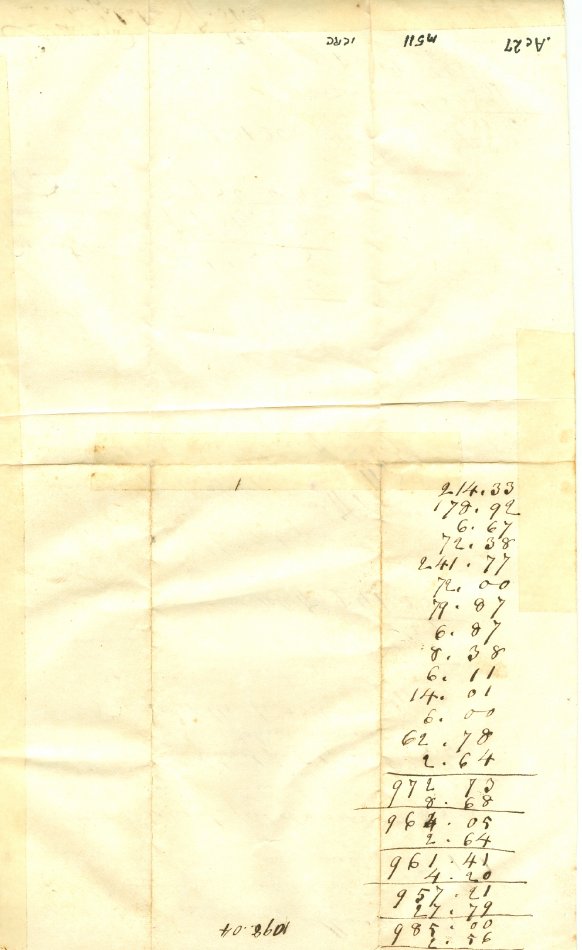 .Ac27 M511
214.33
178.92
6.67
72.38
241.77
72.00
79.87
6.87
8.38
6.11
14.01
6.00
62.78
2.64
972 73
8.68
964.05
2.64
961.41
4.20
957.21
27.79
985.00
1098.04